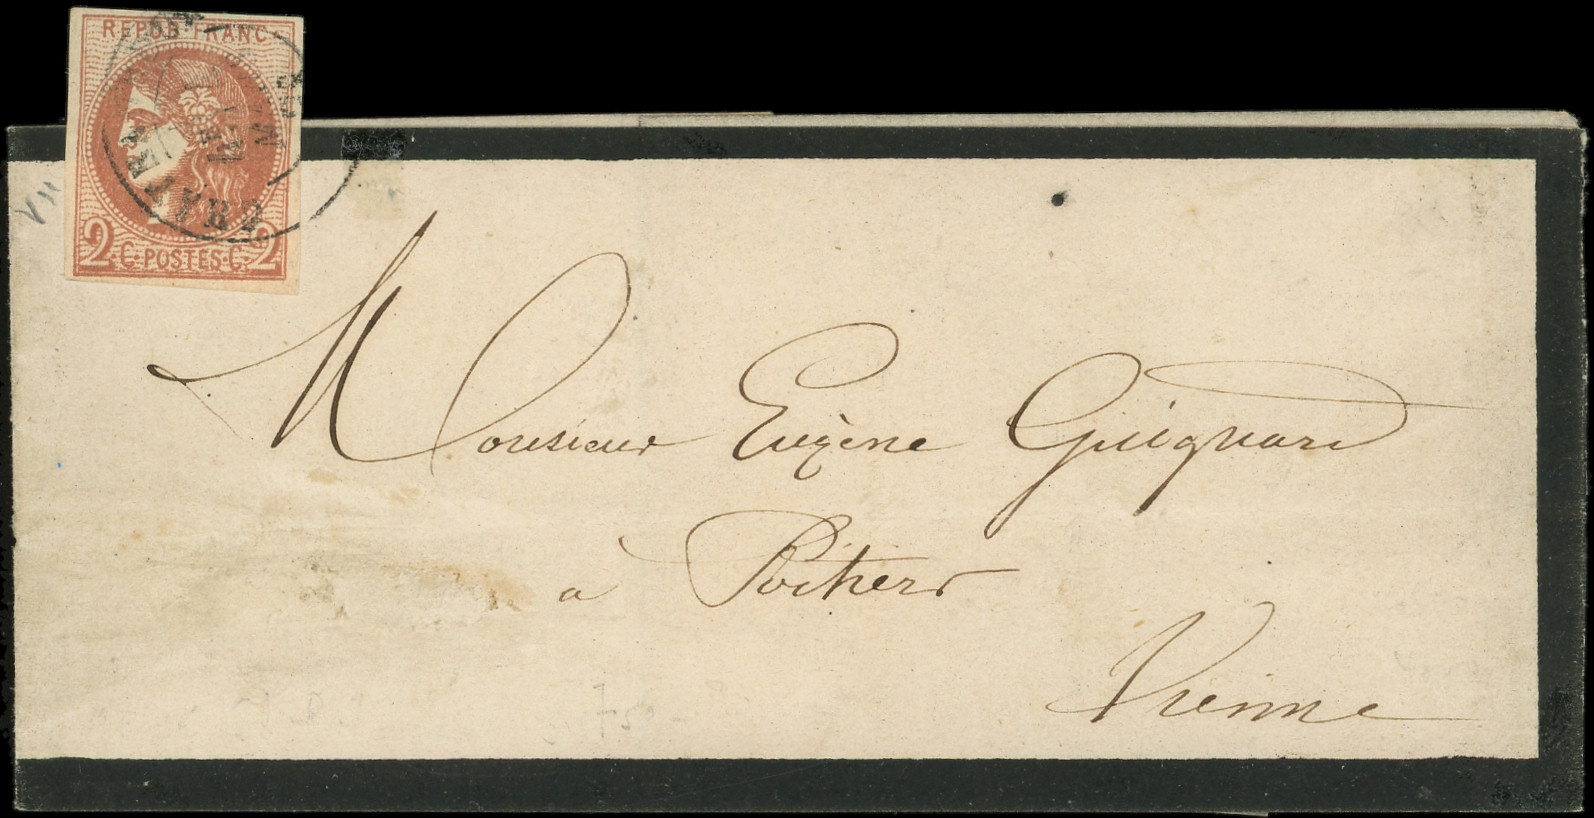 REPUB FRANC
2 · C · POSTES · C · 2
Monsieur Eugène Guignard
à Poitiers
Vienne